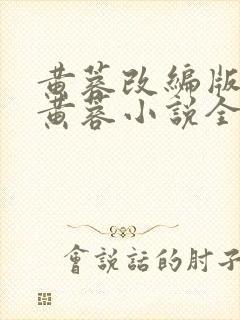 黄蓉改編版
黄蓉小説全
會說話的肘子